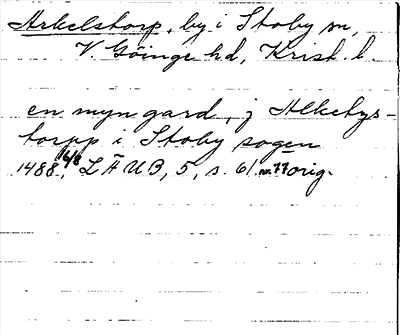 Arkelstorp, by i Stoby sn,
V. Göinge hd, Krist. l.
en myn gard, j Alketys-
torpp i Stoby sogen
1488 16/8, LÄUB, 5, s. 61. nr. 77 orig.